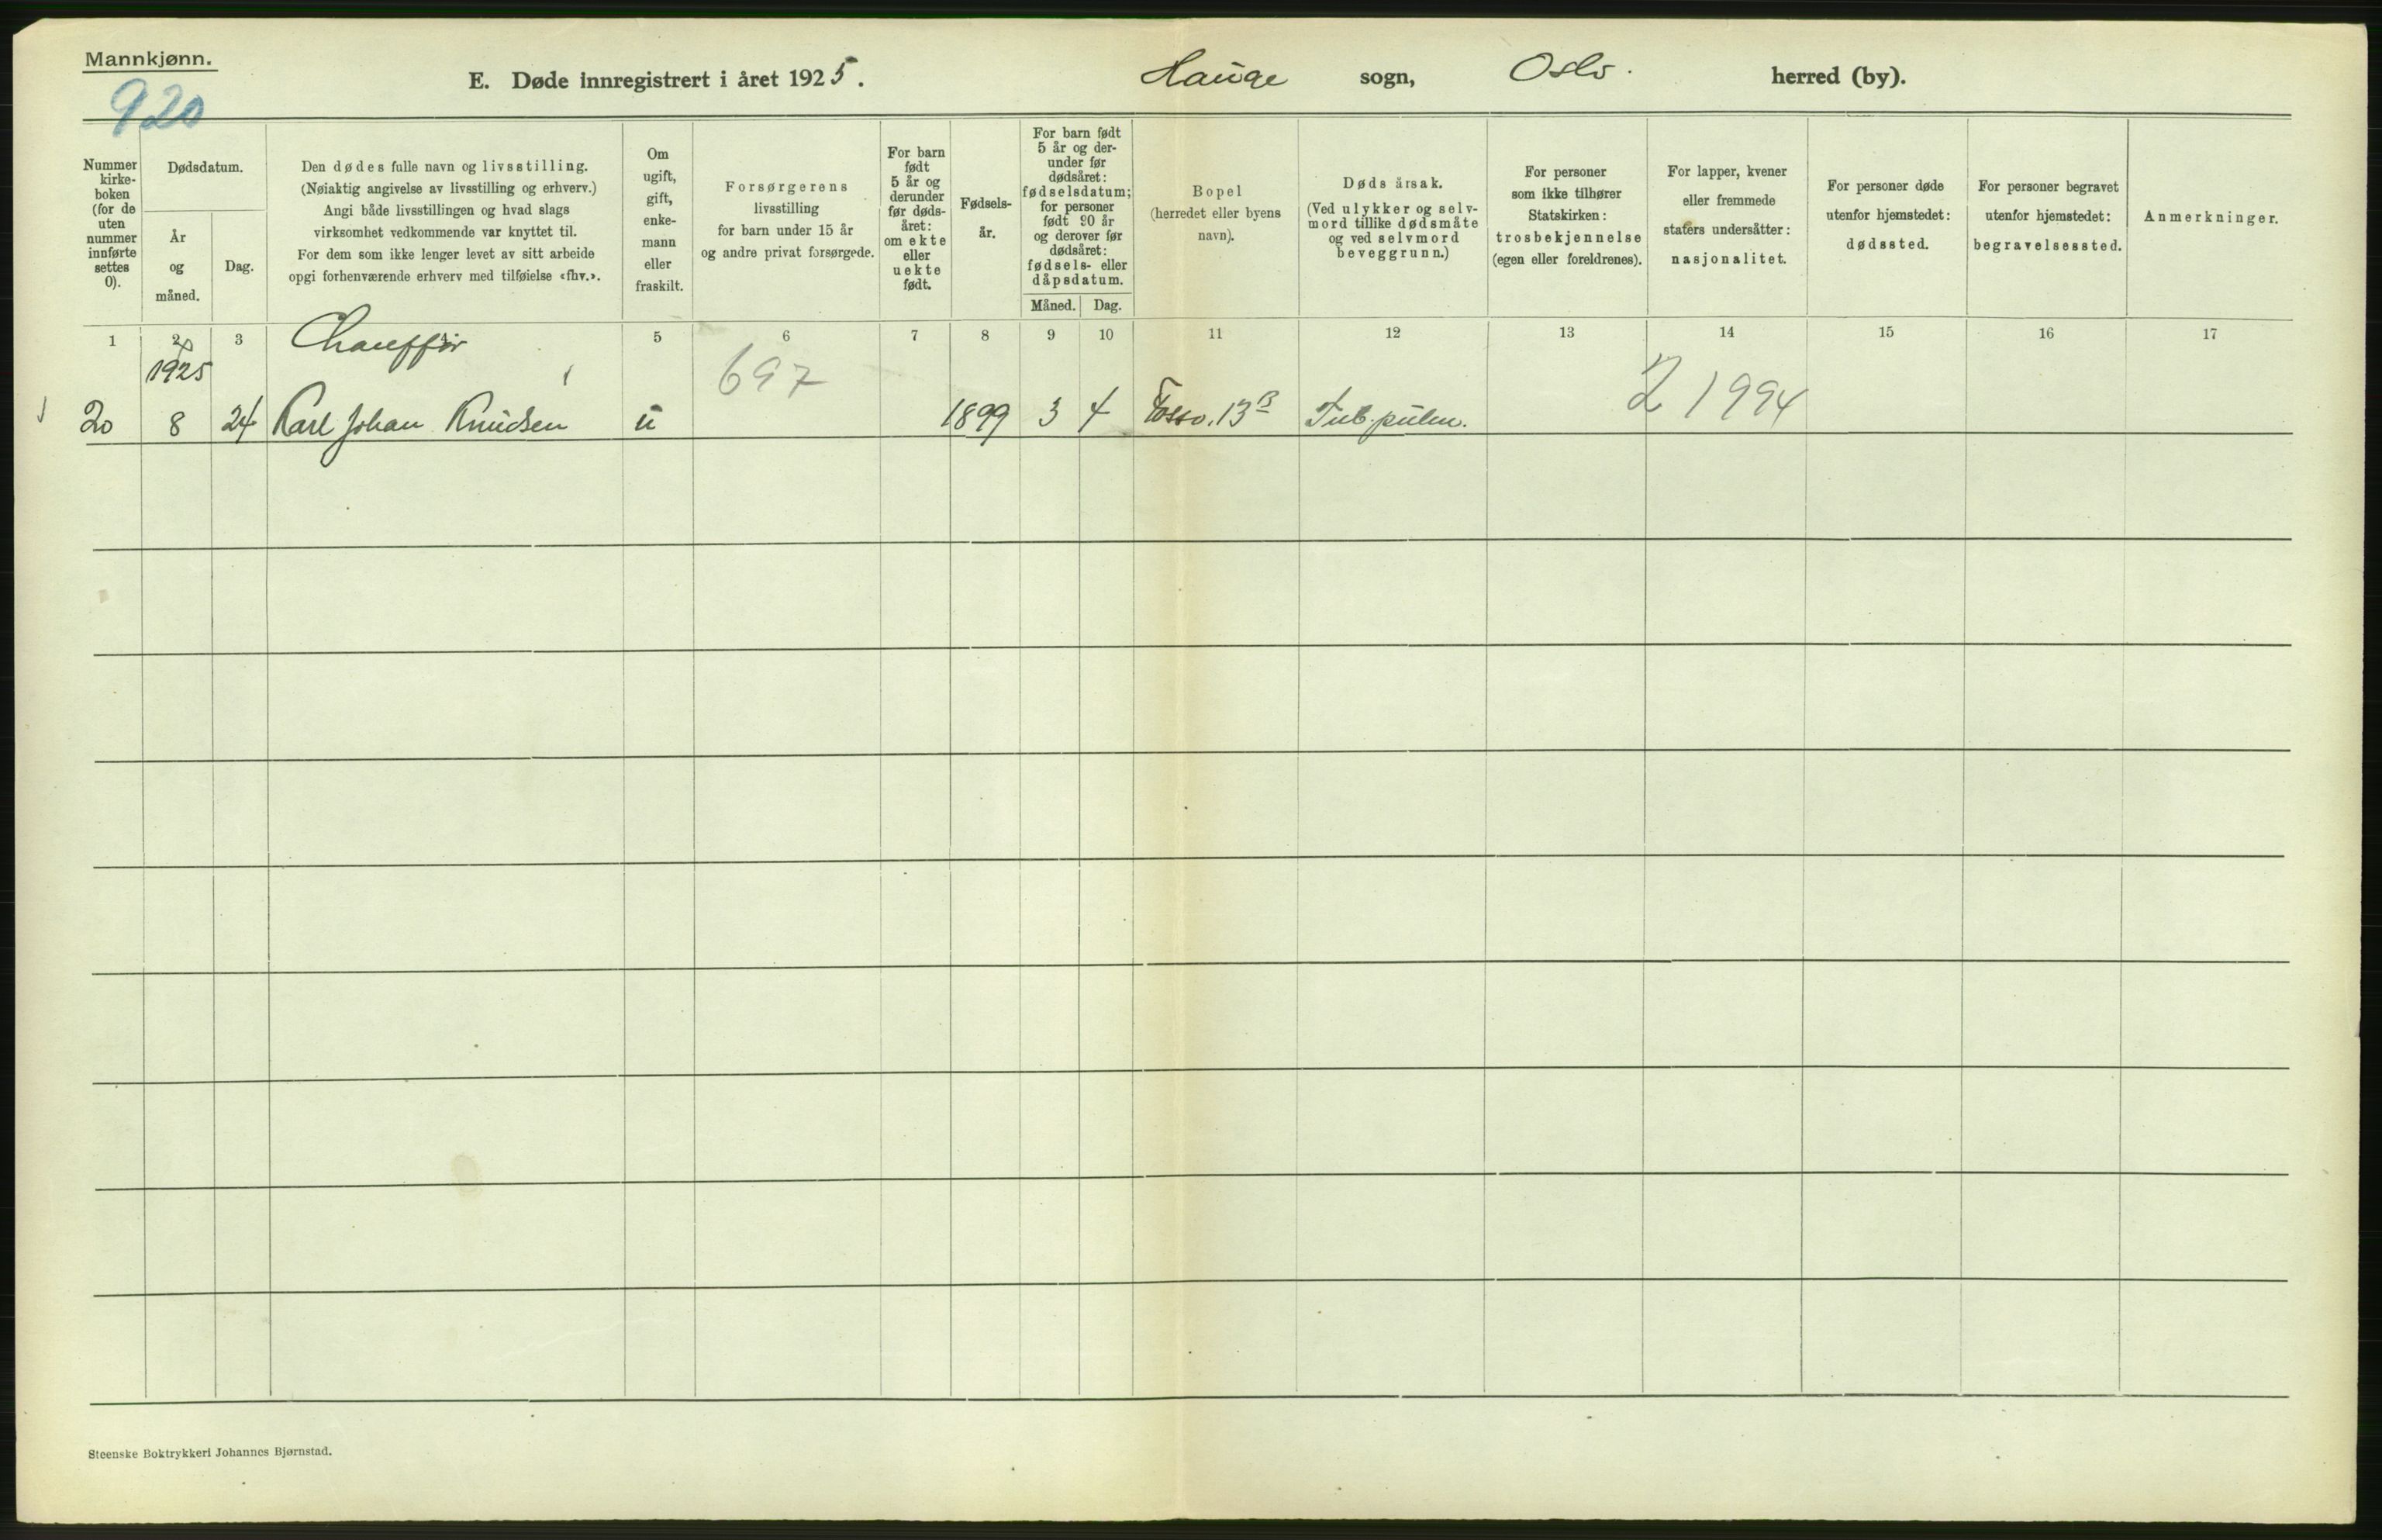 Mannkjønn.
920
E. Døde innregistrert i året 1925. Hauge sogn, Oslo. herred (by).
Nummer
kirke-
boken
(for de
uten
nummer
innførte
settes
0).
Dødsdatum.
År
og
måned.
Dag.
Den dødes fulle navn og livsstilling.
(Nøiaktig angivelse av livsstilling og erhverv.)
Angi både livsstillingen og hvad slags
virksomhet vedkommende var knyttet til.
For dem som ikke lenger levet av sitt arbeide
opgi forhenværende erhverv med tilføielse «fhv.».
Om
ugift,
gift,
enke-
mann
eller
fraskilt.
Forsørgerens
livsstilling
for barn under 15 år
og andre privat forsørgede.
For barn
født
5 år og
derunder
før døds-
året:
om ekte
eller
uekte
født.
Fødsels-
år.
For barn født
5 år og der-
under før
dødsåret:
fødselsdatum;
for personer
født 90 år
og derover før
dødsåret:
fødsels- eller
dåpsdatum.
Måned. Dag.
Bopel
(herredet eller byens
navn).
Dødsårsak.
(Ved ulykker og selv-
mord tillike dødsmåte
og ved selvmord
beveggrunn.)
For personer
som ikke tilhører
Statskirken:
trosbekjennelse
(egen eller foreldrenes).
For lapper, kvener
eller fremmede
staters undersåtter:
nasjonalitet.
For personer døde
utenfor hjemstedet:
dødssted.
For personer begravet
utenfor hjemstedet:
begravelsessted.
Anmerkninger.
1 2 3 4 5 6 7 8 9 10 11 12 13 14 15 16 17
1925 Chauffør 697 21994
20 8 24 Karl Johan Knudsen u 1899 3 4 Fossv. 13B Tub. pulm.
Steenske Boktrykkeri Johannes Bjørnstad.